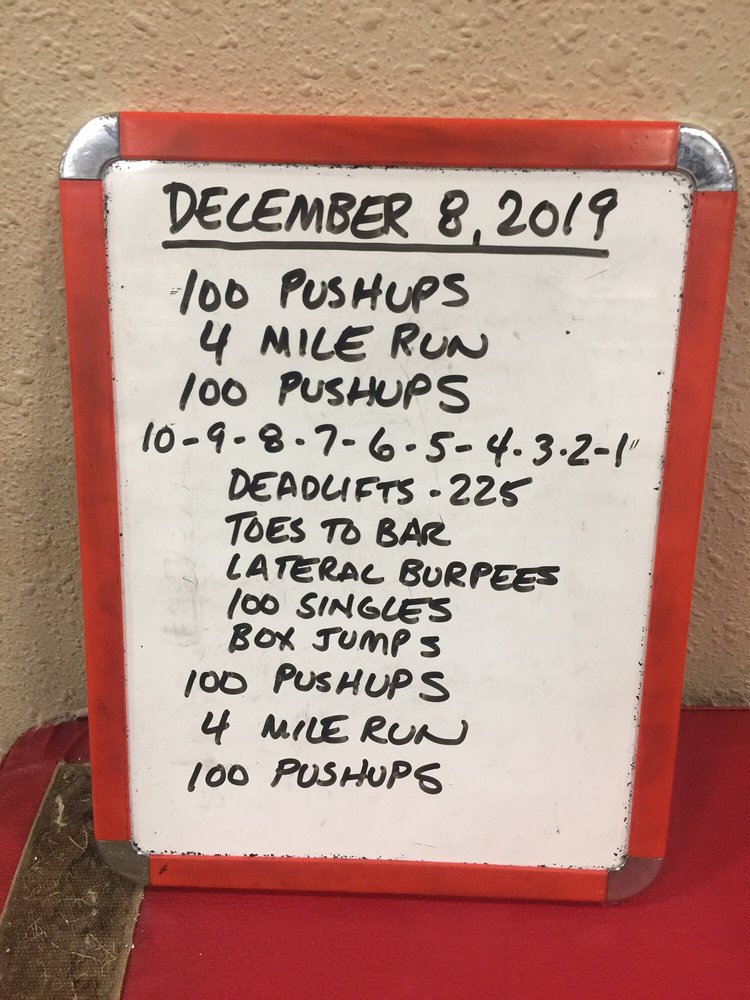 DECEMBER 8, 2019
100 PUSHUPS
4 MILE RUN
100 PUSHUPS
10-9-8-7-6-5-4-3-2-1"
DEADLIFTS - 225
TOES TO BAR
LATERAL BURPEES
100 SINGLES
BOX JUMPS
100 PUSHUPS
4 MILE RUN
100 PUSHUPS